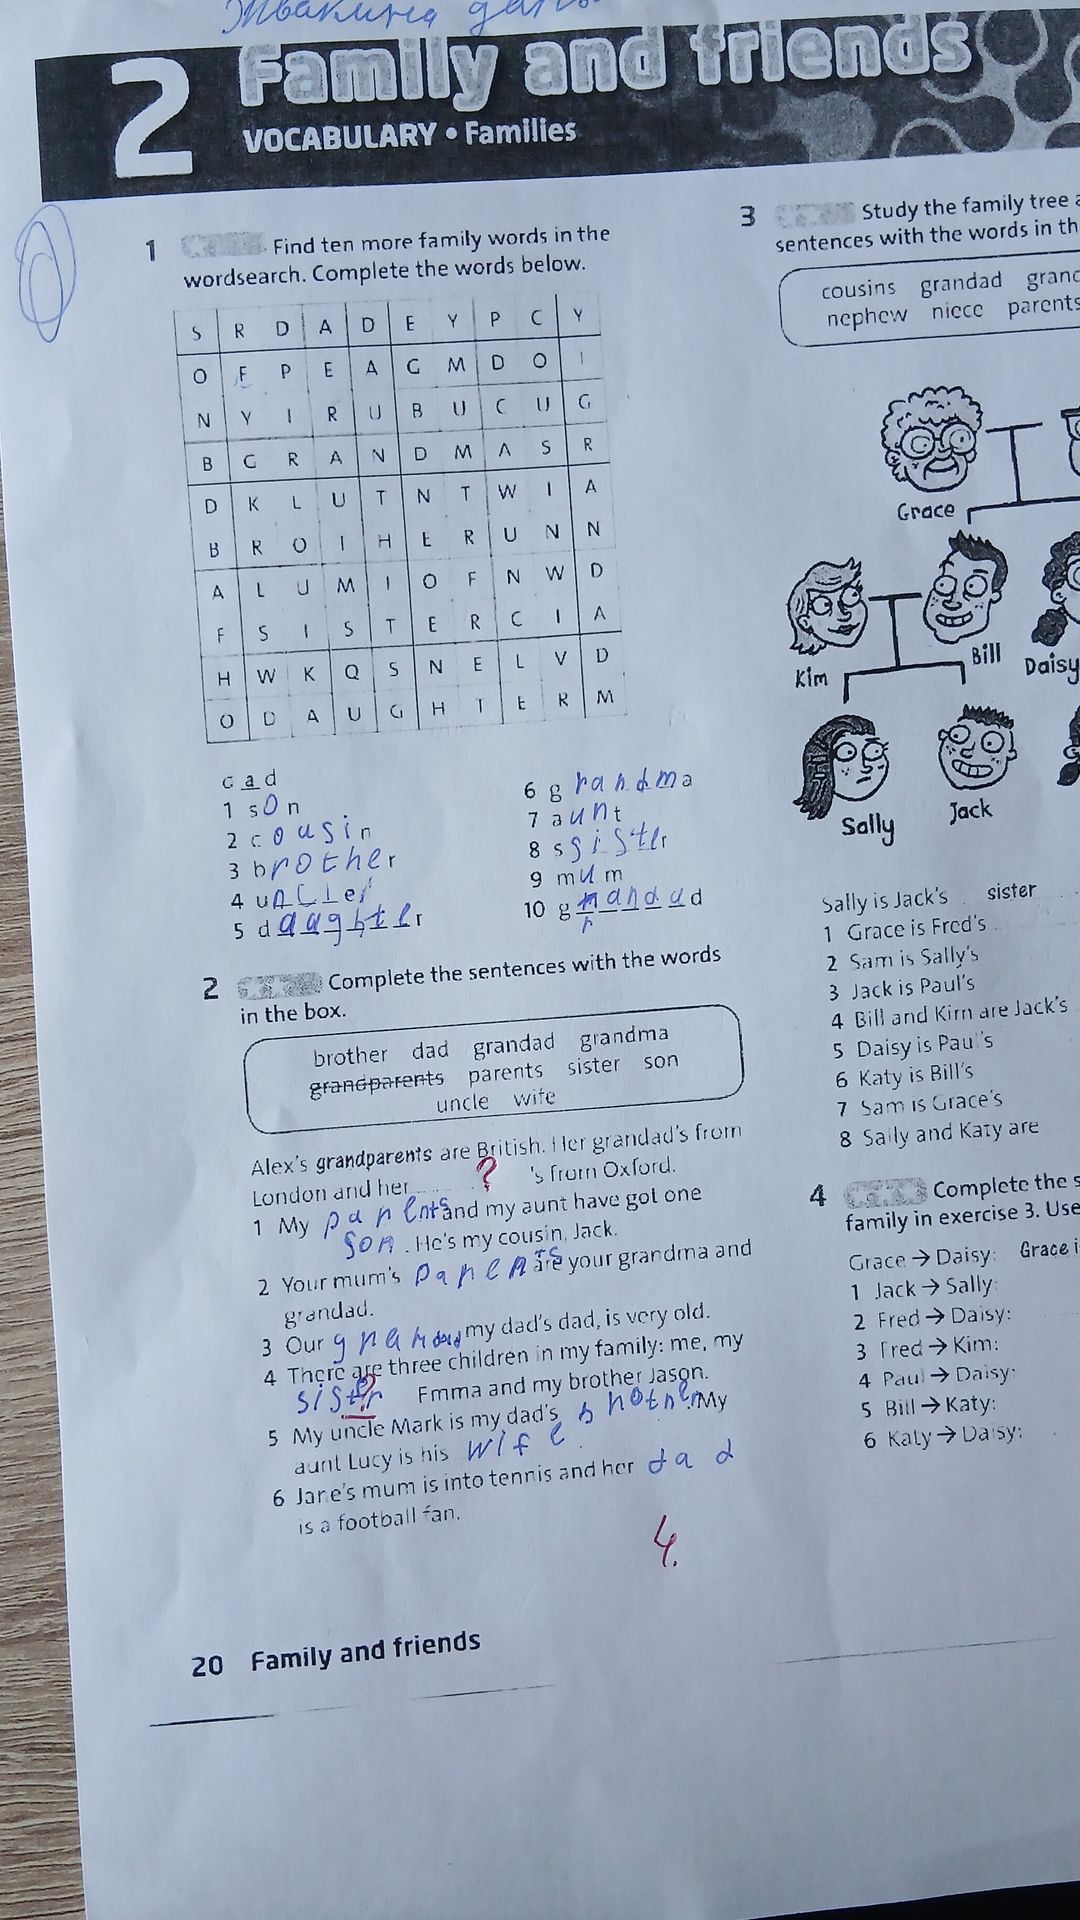 2 Family and friends
VOCABULARY • Families
1 Find ten more family words in the
wordsearch. Complete the words below.
S R D A D E Y P C Y
O F P E A G M D O I
N Y I R U B U C U G
B G R A N D M A S R
D K L U T N T W I A
B R O I H E R U N N
A L U M I O F N W D
F S I S T E R C I A
H W K Q S N E L V D
O D A U G H T E R M
dad
1 son
2 cousin
3 brother
4 uncle
5 daughter
6 grandma
7 aunt
8 ssister
9 mum
10 g andad
r
2 Complete the sentences with the words
in the box.
brother dad grandad grandma
grandparents parents sister son
uncle wife
Alex's grandparents are British. Her grandad's from
London and her ? 's from Oxford.
1 My parents and my aunt have got one
son. He's my cousin, Jack.
2 Your mum's parents are your grandma and
grandad.
3 Our grandad my dad's dad, is very old.
4 There are three children in my family: me, my
sister Emma and my brother Jason.
5 My uncle Mark is my dad's brother. My
aunt Lucy is his wife
6 Jane's mum is into tennis and her dad
is a football fan.
4.
20 Family and friends
3 Study the family tree
sentences with the words in th
cousins grandad grand
nephew niece parents
Grace
Kim
Bill
Daisy
Sally
Jack
Sally is Jack's sister
1 Grace is Fred's
2 Sam is Sally's
3 Jack is Paul's
4 Bill and Kim are Jack's
5 Daisy is Paul's
6 Katy is Bill's
7 Sam is Grace's
8 Sally and Katy are
4 Complete the s
family in exercise 3. Use
Grace → Daisy: Grace i
1 Jack → Sally:
2 Fred → Daisy:
3 Fred → Kim:
4 Paul → Daisy:
5 Bill → Katy:
6 Katy → Daisy: